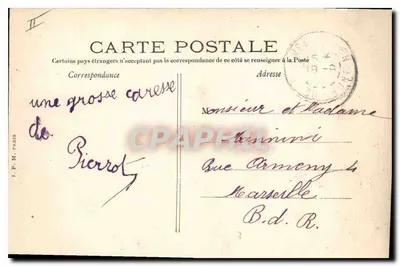 II
CARTE POSTALE
Certains pays étrangers n'acceptant pas la correspondance de ce côté se renseigner à la Poste
Correspondance
Adresse
une grosse caresse
de
Pierrot
Monsieur et Madame
Rue Armeny 4
Marseille
B. d. R.
I. P. M. PARIS
CPARAMA